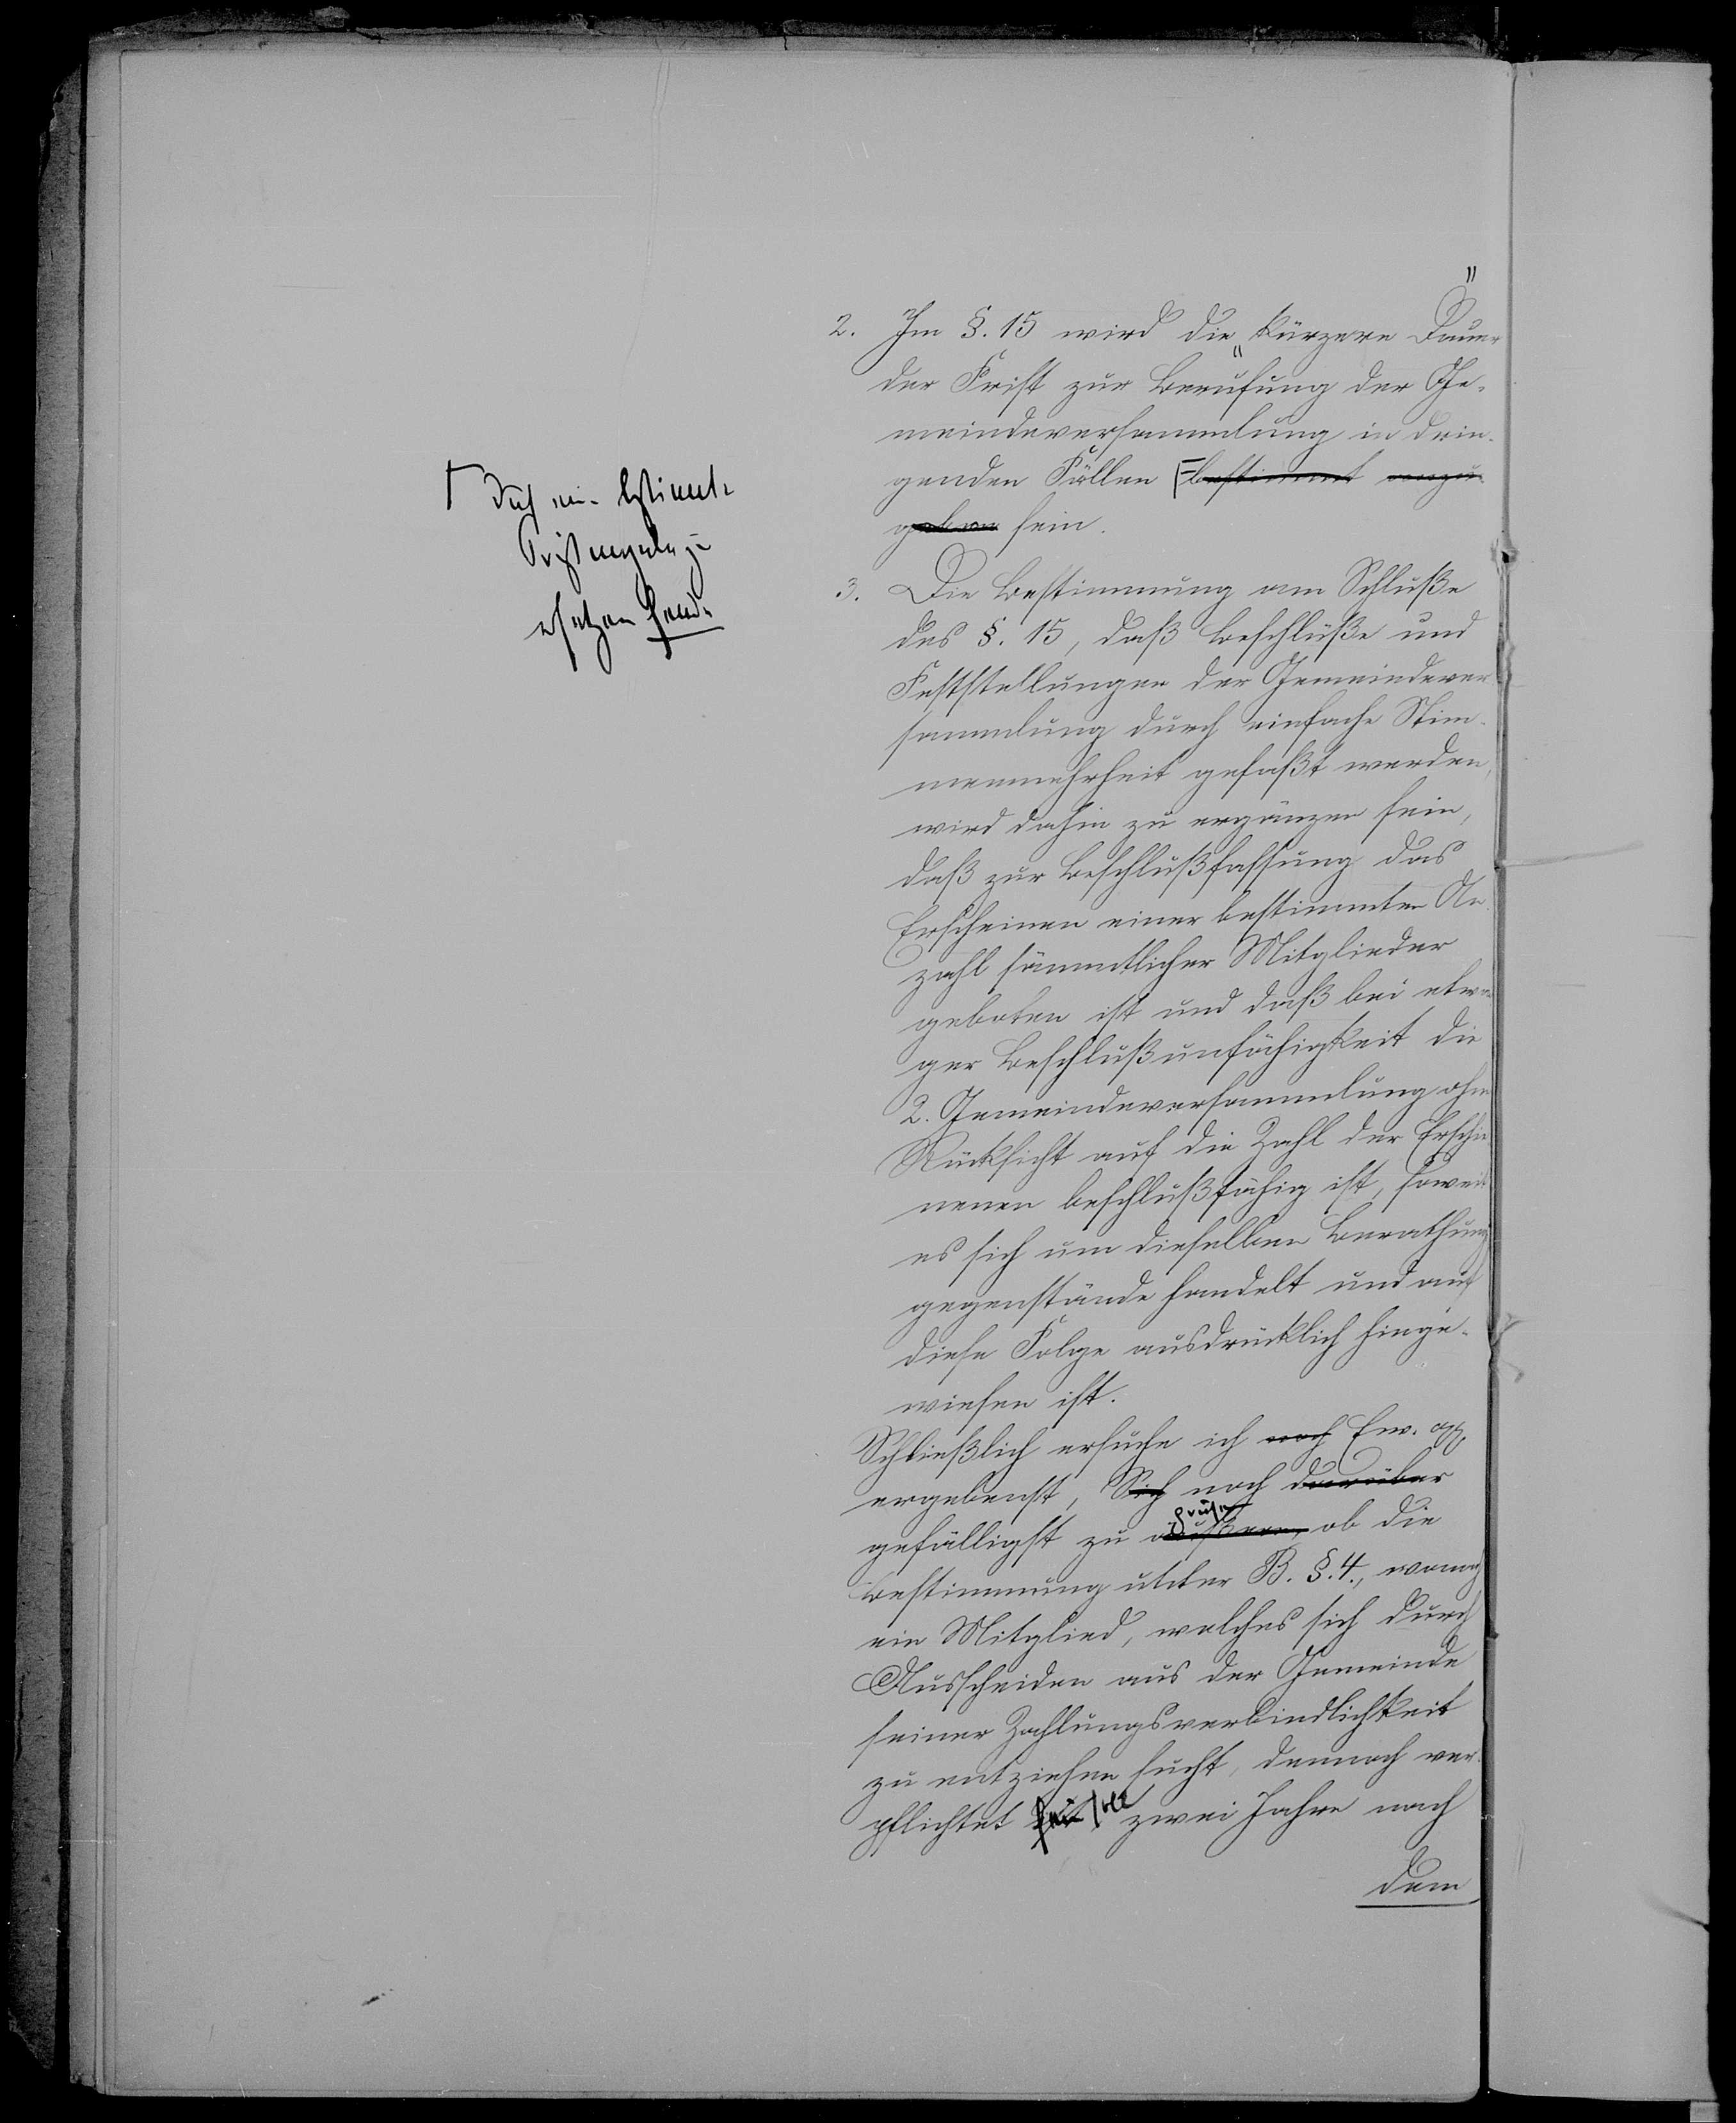 2. Im §. 15 wird die „kürzere Dauer"
der Frist zur Berufung der Ge-
meindeversammlung in drin-
genden Fällen bestimmt anzu-
geben sein.
durch eine bestimmte
Fristangabe zu
ersetzen sein.
3. Die Bestimmung am Schluße
des §. 15, daß Beschlüße und
Feststellungen der Gemeindever
sammlung durch einfache Stim-
menmehrheit gefaßt werden,
wird dahin zu ergänzen sein,
daß zur Beschlußfassung das
Erscheinen einer bestimmten An-
zahl sämmtlicher Mitglieder
geboten ist und daß bei etwai
ger Beschlußunfähigkeit die
2. Gemeindeversammlung ohne
Rücksicht auf die Zahl der Erschie
nenen beschlußfähig ist, soweit
es sich um dieselben Berathungs
gegenstände handelt und auf
diese Folge ausdrücklich hinge-
wiesen ist.
Schließlich ersuche ich noch Ew. pp.
ergebenst, Sich noch darüber
gefälligst zu äußern, prüfen ob die
Bestimmung unter B. §. 4., wonach
ein Mitglied, welches sich durch
Ausscheiden aus der Gemeinde
seiner Zahlungsverbindlichkeit
zu entziehen sucht, dennoch ver
pflichtet sein soll zwei Jahre nach
dem